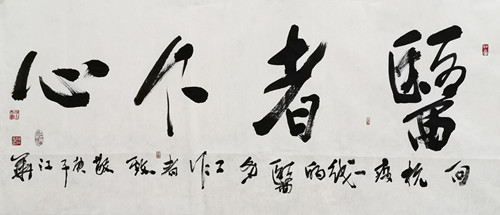 醫者仁心
向抗疫一线的醫务工作者致敬庚子江